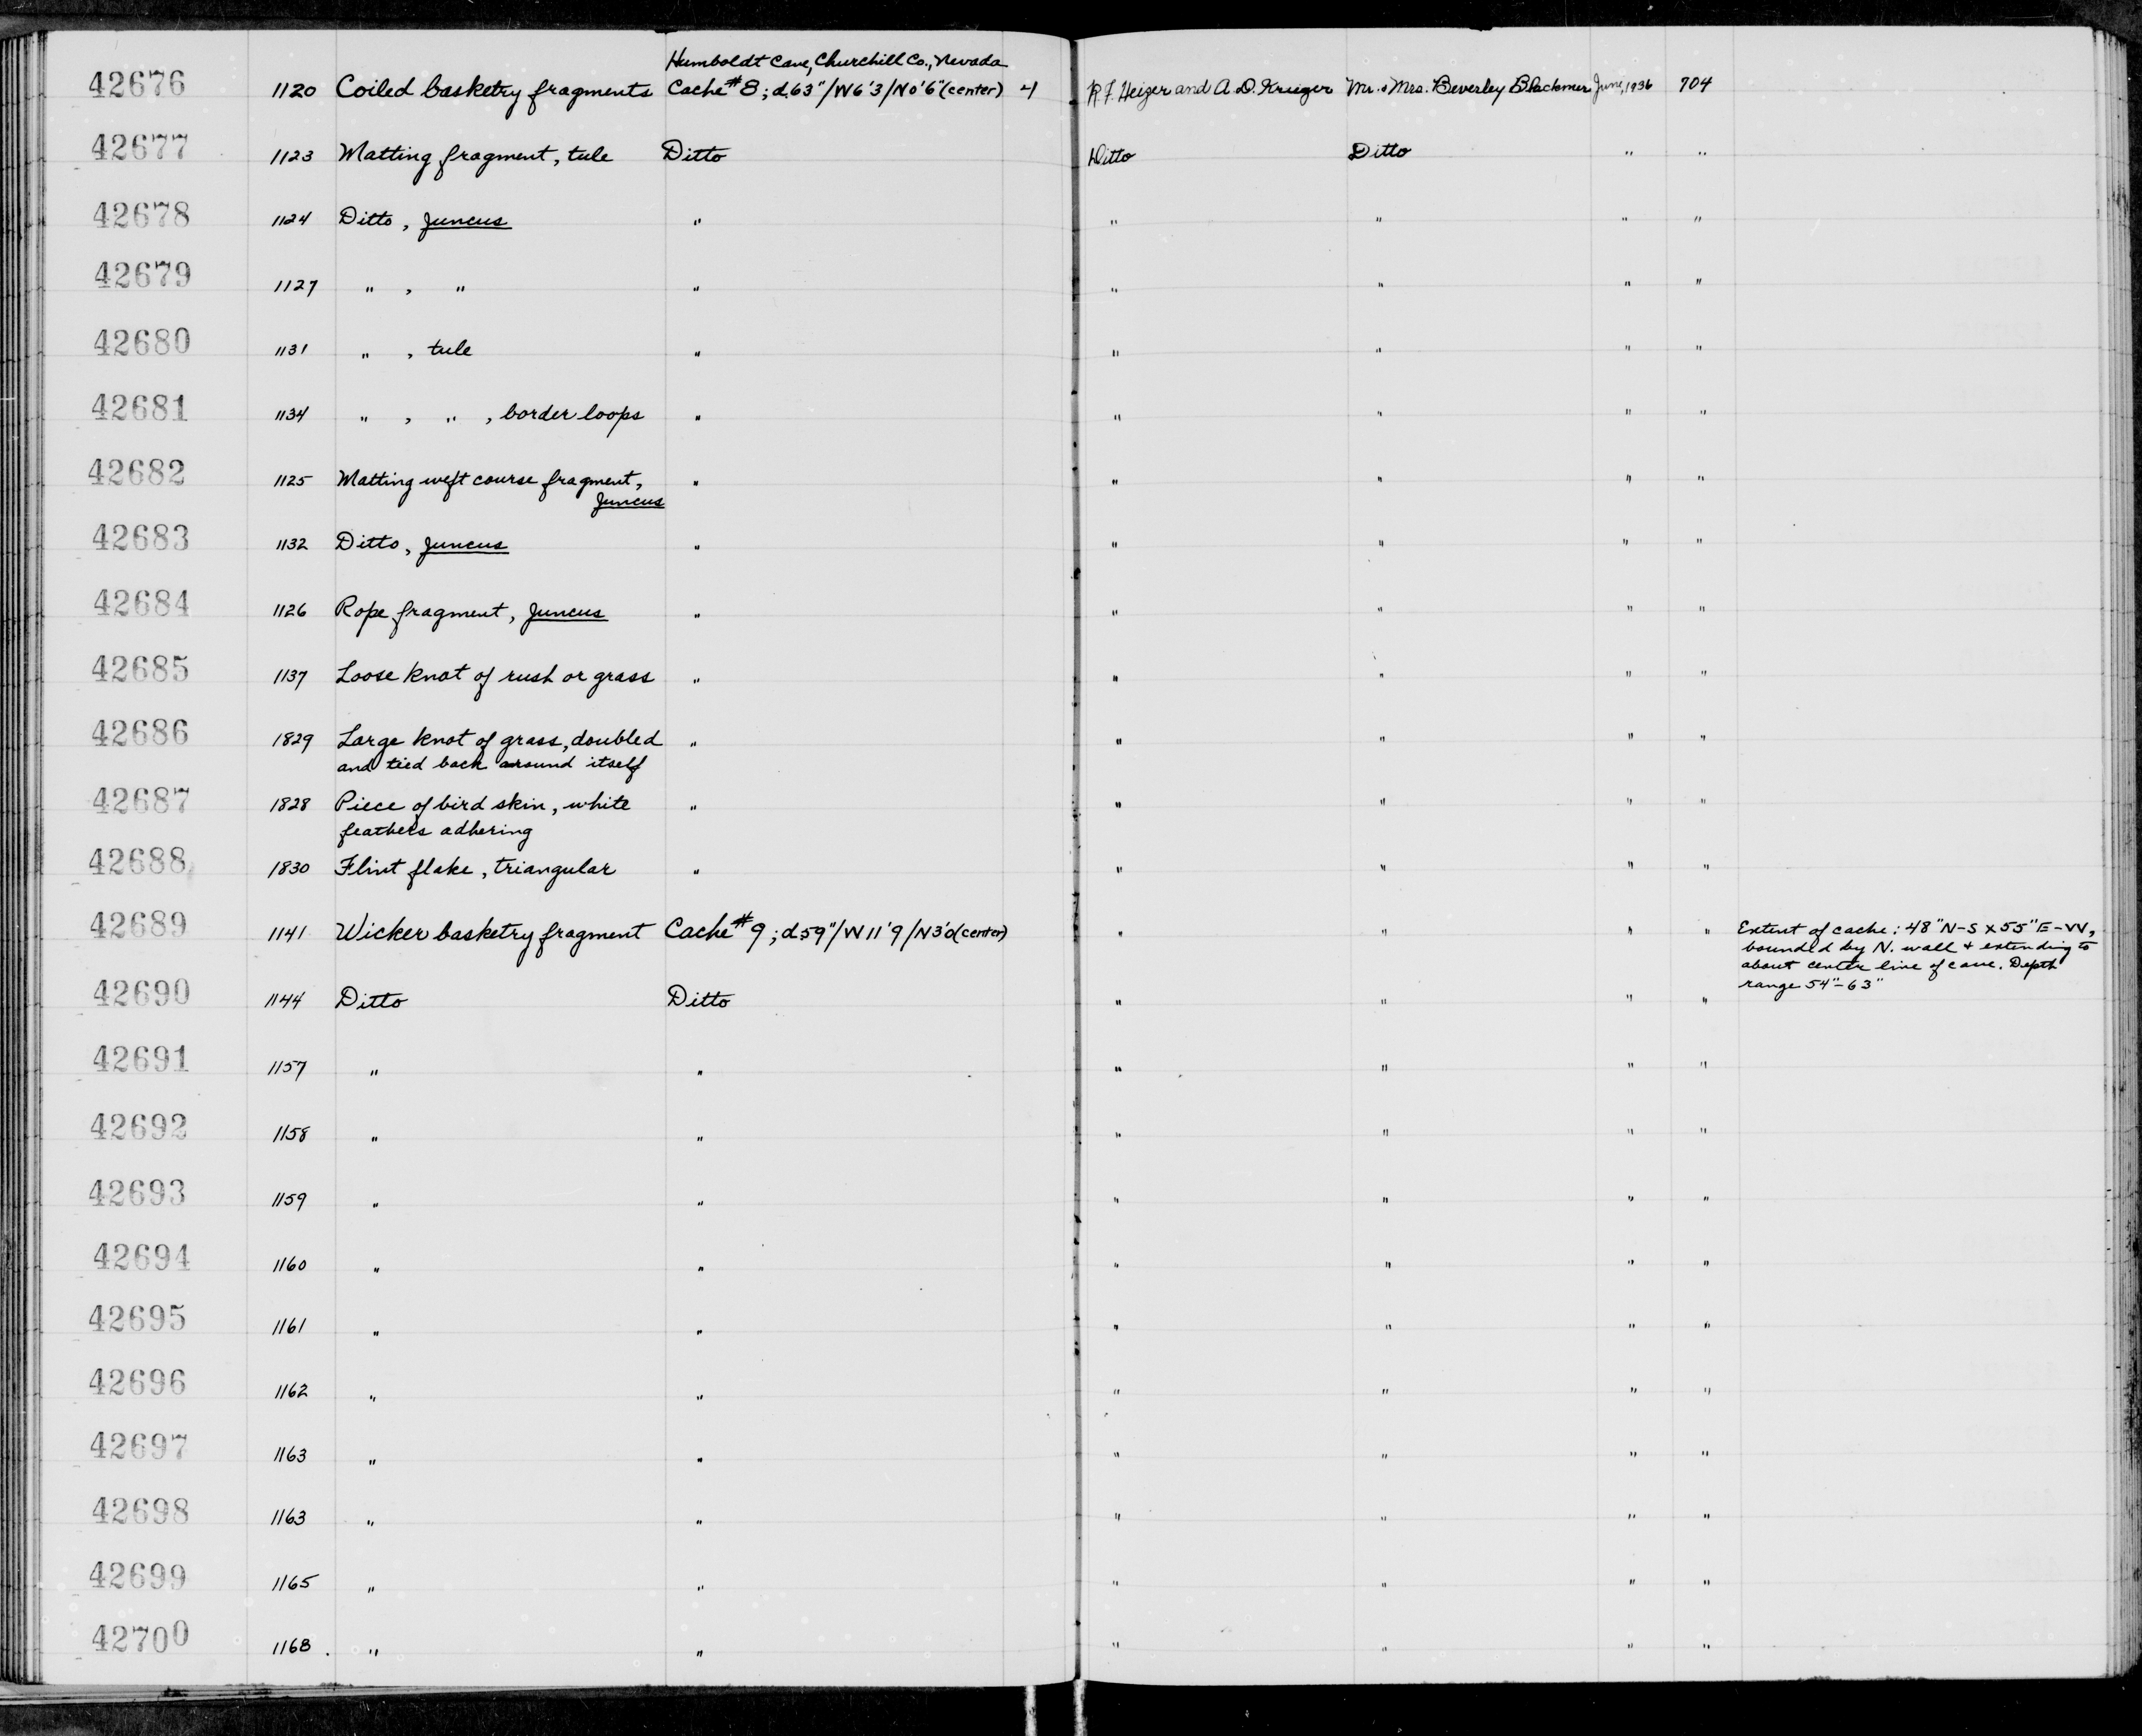 Humboldt Cave, Churchill Co., Nevada
42676 1120 Coiled basketry fragments Cache #8; d.63"/W6'3/N0'6"(center) 4 R.F. Heizer and A.D. Krieger Mr. & Mrs. Beverley Blackmer June, 1936 704
42677 1123 Matting fragment, tule Ditto Ditto Ditto " "
42678 1124 Ditto, Juncus " " " " "
42679 1127 " , " " " " " "
42680 1131 " , tule " " " " "
42681 1134 " , " , border loops " " " " "
42682 1125 Matting weft course fragment, " " " " "
Juncus
42683 1132 Ditto, Juncus " " " " "
42684 1126 Rope fragment, Juncus " " " " "
42685 1137 Loose knot of rush or grass " " " " "
42686 1829 Large knot of grass, doubled " " " " "
and tied back around itself
42687 1828 Piece of bird skin, white " " " " "
feathers adhering
42688 1830 Flint flake, triangular " " " " "
42689 1141 Wicker basketry fragment Cache #9; d.59"/W11'9/N3'0(center) " " " " Extent of cache: 48" N-S x 55" E-W,
bounded by N. wall & extending to
about center line of cave. Depth
range 54"-63"
42690 1144 Ditto Ditto " " " "
42691 1157 " " " " " "
42692 1158 " " " " " "
42693 1159 " " " " " "
42694 1160 " " " " " "
42695 1161 " " " " " "
42696 1162 " " " " " "
42697 1163 " " " " " "
42698 1163 " " " " " "
42699 1165 " " " " " "
42700 1168. " " " " " "